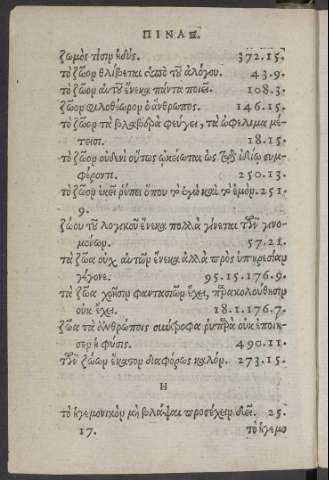 ΠΙΝΑΞ.
ζωμὸς τίσιν ἡδύς. 372.15.
τὸ ζῶον θλίβεται ὑπὸ τοῦ ἀλόγου. 43.9.
τὸ ζῶον αὑτοῦ ἕνεκα πάντα ποιεῖ. 108.3.
ζῶον φιλοθέωρον ὁ ἄνθρωπος. 146.15.
τὸ ζῶον τὰ βλαβερὰ φεύγει, τὰ ὠφέλιμα μέ-
τεισι. 18.15.
τὸ ζῶον οὐδενὶ οὕτως ᾠκείωται ὡς τῷ ἰδίῳ συμ-
φέροντι. 250.13.
τὸ ζῶον ἐκεῖ ῥέπει ὅπου τὸ ἐγὼ καὶ τὸ ἐμόν. 251.
9.
ζώου τοῦ λογικοῦ ἕνεκα πολλὰ γίνεται τῶν γινο-
μένων. 57.21.
τὰ ζῶα οὐχ αὑτῶν ἕνεκα ἀλλὰ πρὸς ὑπηρεσίαν
γέγονε. 95.15.176.9.
τὰ ζῶα χρῆσιν φαντασιῶν ἔχει, παρακολούθησιν
οὐκ ἔχει. 18.1.176.7.
ζῶα τὰ ἀνθρώποις σύντροφα ῥυπαρὰ οὐκ ἐποίη-
σεν ἡ φύσις. 490.11.
τῶν ζώων ἕκαστον διαφόρως καλόν. 273.15.
Η
τὸ ἡγεμονικὸν μὴ βλάψαι προσέχειν δεῖ. 25.
17. τὸ ἡγεμο